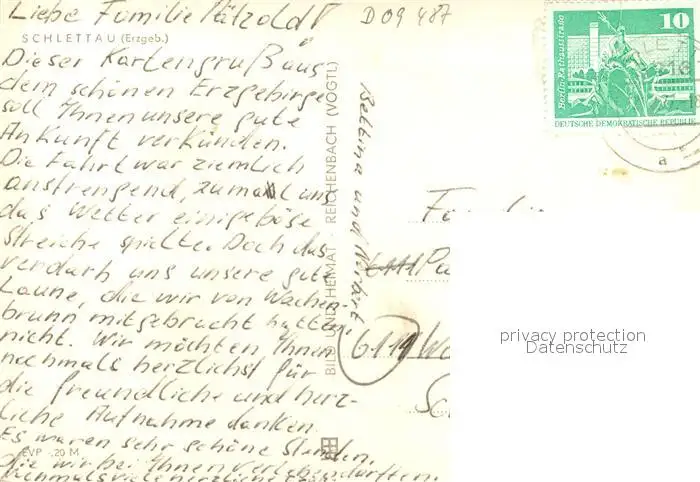 Liebe Familie Pätzold!
D 09 487
SCHLETTAU (Erzgeb.)
Dieser Kartengruß aus
dem schönen Erzgebirge
soll Ihnen unsere gute
Ankunft verkünden.
Die Fahrt war ziemlich
anstrengend, zumal uns
das Wetter einige böse
Streiche spielte. Doch das
verdarb uns unsere gute
Laune, die wir von Wachen-
brunn mitgebracht hatten,
nicht. Wir möchten Ihnen
nochmals herzlichst für
die freundliche und herz-
liche Aufnahme danken.
Es waren sehr schöne Stunden,
die wir bei Ihnen verleben durften.
Nochmals viele herzliche
EVP -,20 M
Bettina und Norbert
BILD UND HEIMAT REICHENBACH (VOGTL)
10
Berlin-Rathausstraße
DEUTSCHE DEMOKRATISCHE REPUBLIK
a
Familie
Pä
6111 Wa
privacy protection
Datenschutz